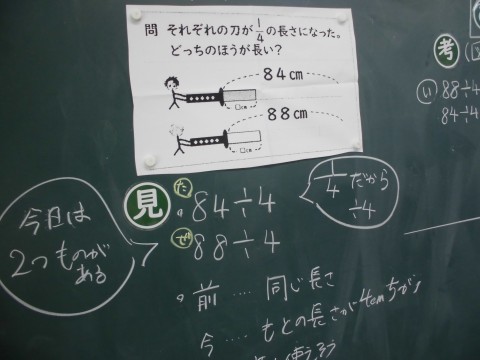 問 それぞれの刀が1/4の長さになった。
どっちのほうが長い？
84cm
□cm
88cm
□cm
考
い 88÷4
84÷4
見
た 84÷4
ぜ 88÷4
1/4だから
÷4
今日は
2つものが
ある
。前 …… 同じ長さ
今 …… もとの長さが4cmちがう